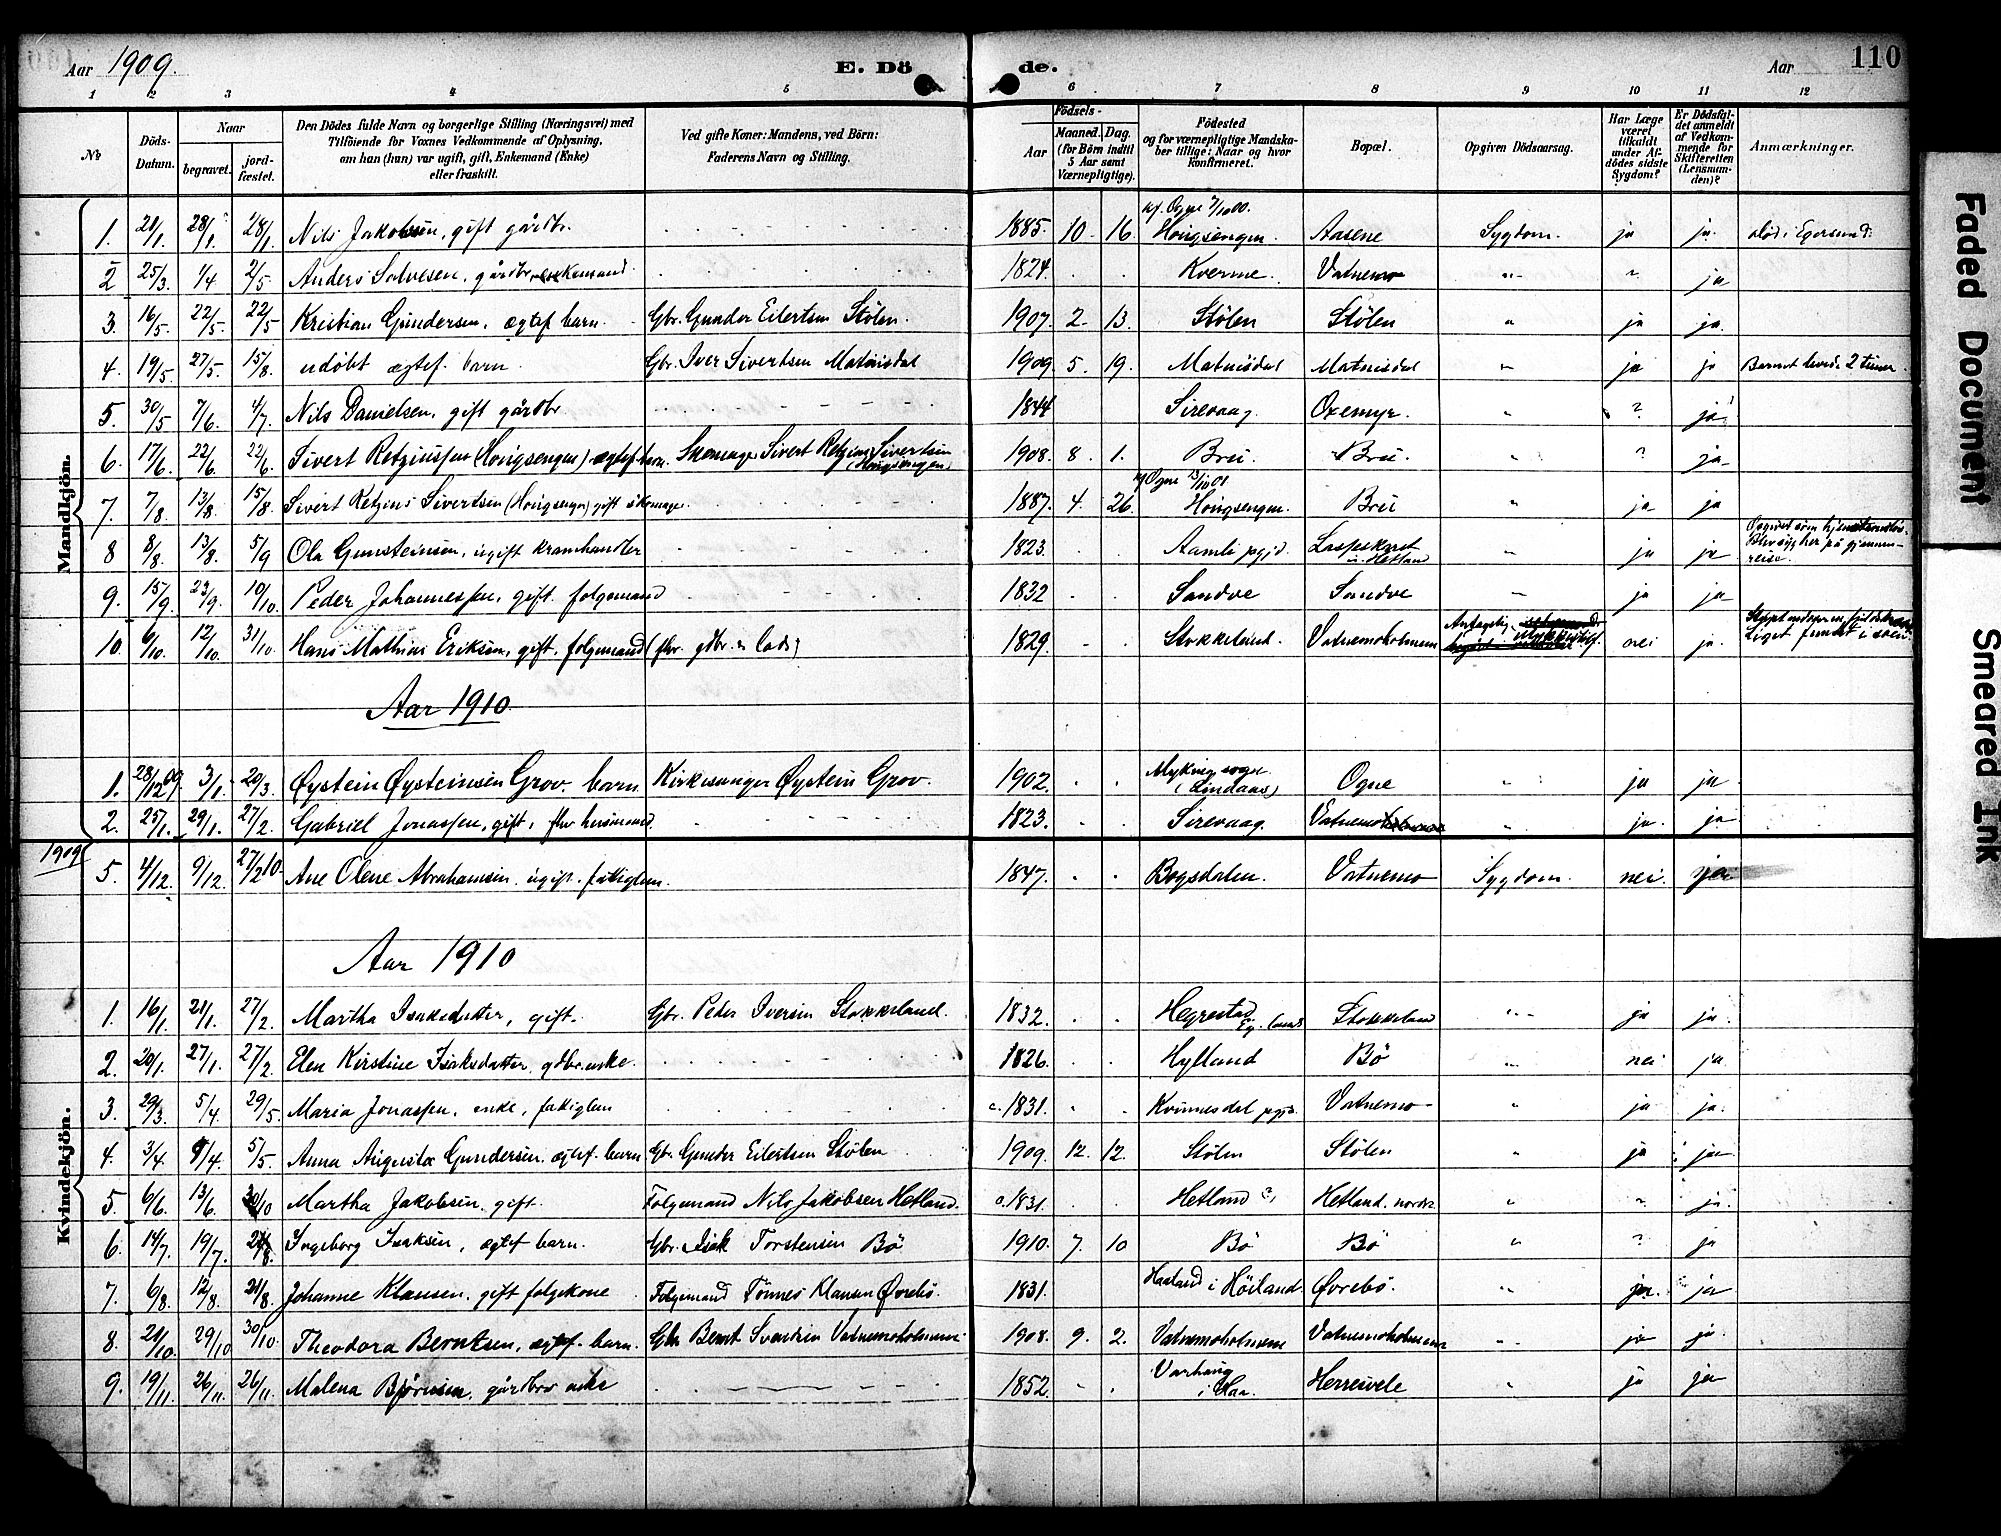 Aar 1909.
E. Døde.
Aar
110
1 2 3 4 5 6 7 8 9 10 11 12
No
Döds-Datum.
Naar
begravet.
jord-fæstet.
Den Dödes fulde Navn og borgerlige Stilling (Næringsvei) med
Tilföiende for Voxnes Vedkommende af Oplysning,
om han (hun) var ugift, gift, Enkemand (Enke)
eller fraskilt.
Ved gifte Koner: Mandens, ved Börn:
Faderens Navn og Stilling.
Födsels-
Aar
Maaned. Dag.
(for Börn indtil
5 Aar samt
Værnepligtige).
Födested
og for værnepligtige Mandska-
ber tillige: Naar og hvor
konfirmeret.
Bopæl.
Opgiven Dödsaarsag.
Har Læge
været
tilkaldt
under Af-
dödes sidste
Sygdom?
Er Dödsfal-
det anmeldt
af Vedkom-
mende for
Skifteretten
(Lensman-
den)?
Anmærkninger.
Mandkjön.
1. 21/1. 28/1. 28/1. Nils Jakobsen, gift gårdbr. 1885. 10. 16. Kf. Ogne 7/10 00. Høigsengen. Aasene Sygdom. ja ja. død i Egersund.
2 25/3. 1/4 2/5. Anders Salvesen, gårdbr. enkemand. 1824. Kverme. Vatnemo " ? ja
3. 16/5. 22/5. 22/5 Kristian Gundersen, ægtef barn. Gbr. Gunder Eilertsen Stølen. 1907. 2. 13. Stølen Stølen " ja ja.
4. 19/5. 27/5. 15/8. udøbt ægtef. barn. Gbr. Iver Sivertsen Matnisdal 1909. 5. 19. Matnisdal Matnisdal " ja ja Barnet levede 2 timer.
5. 30/5 7/6. 4/7. Nils Danielsen, gift gårdbr 1844 Sirevaag. Oxemyr. " ? ja
6. 17/6. 22/6. 22/6. Sivert Retziussen (Høigsengen) ægtef. barn. Skomager Sivert Retzius Sivertsen (Høigsengen) 1908. 8. 1. Bru. Bru. " ? ja
7. 7/8. 13/8. 15/8. Sivert Retzius Sivertsen (Høigsengen) gift skomager. 1887. 4. 26. Kf Ogne 7/10 01 Høigsengen. Bru " ja ja
8 8/8. 13/8. 5/9 Ola Gunsteinsen, ugift kramhandler 1823. Aamli pgjd. Laspskaret i Hetland " ja ja Opgivet som hjemstamløs. Blev syg her på gjennem-reise.
9. 15/9. 23/9. 10/10. Peder Johannessen, gift. folgemand 1832 Sandve Sandve " ja ja
10. 6/10. 12/10. 31/10. Hans Mathias Eriksen, gift, folgemand (fhv. gdbr. & lods) 1829. Stokkeland. Vatnemoholmen Antagelig ulykkestilf. nei ja. Liget fundet i søen.
Aar 1910.
1. 28/12 09. 3/1. 20/3. Øystein Øysteinsen Grov. barn. Kirkesanger Øystein Grov. 1902. Myking sogn (Lindaas) Ogne " ja ja
2. 25/1. 29/1. 27/2. Gabriel Jonassen, gift, fhv husmand. 1823. Sirevaag. Vatnemo " ja. ja
1909
5. 4/12. 9/12. 27/2 10. Ane Olene Abrahamsen ugift. fattiglem. 1847. Bogsdalen. Vatnemo Sygdom. nei. ja
Aar 1910
Kvindekjön.
1. 16/1. 21/1. 27/2. Martha Isaksdatter, gift. Gbr. Peder Iversen Stokkeland. 1832. Hegrestad Eg. lands Stokkeland " ja ja.
2. 20/1. 27/1. 27/2. Elen Kirstine Isaksdatter, gdbr. enke. 1826. Hylland Bö " nei ja
3. 29/3. 5/4. 29/5. Maria Jonassen, enke, fattiglem c. 1831. Kvinnesdal pgjd. Vatnemo " ja ja.
4. 3/4. 8/4. 5/5. Anna Augusta Gundersen. ægtef. barn Gbr Gunder Eilertsen Stølen 1909. 12. 12. Stølen Stølen " ja ja
5. 6/6. 13/6. 30/10 Martha Jakobsen, gift. Folgemand Nils Jakobsen Hetland. c. 1831. Hetland ? Hetland. nordre " ? ja.
6. 14/7. 19/7. 21/8. Ingeborg Isaksen, ægtef barn. Gbr. Isak Torstensen Bö 1910. 7. 10 Bö Bö " ? ja
7. 6/8. 12/8. 21/8. Johanne Klausen, gift folgekone Folgemand Tönnes Klausen Øvrebö. 1831. Haaland i Höiland Øvrebö. " ja. ja
8. 21/10. 29/10 30/10. Theodora Berntsen, ægtef. barn. Gbr Bernt Svendsen Vatnemoholmen. 1908. 9. 2. Vatnemoholmen Vatnemoholmen " ja ja.
9. 19/11. 26/11. 26/11. Malena Björnsen, gårdbrs enke 1852. Varhaug i Haa. Herresvele " ja ja
Faded Document
Smeared Ink